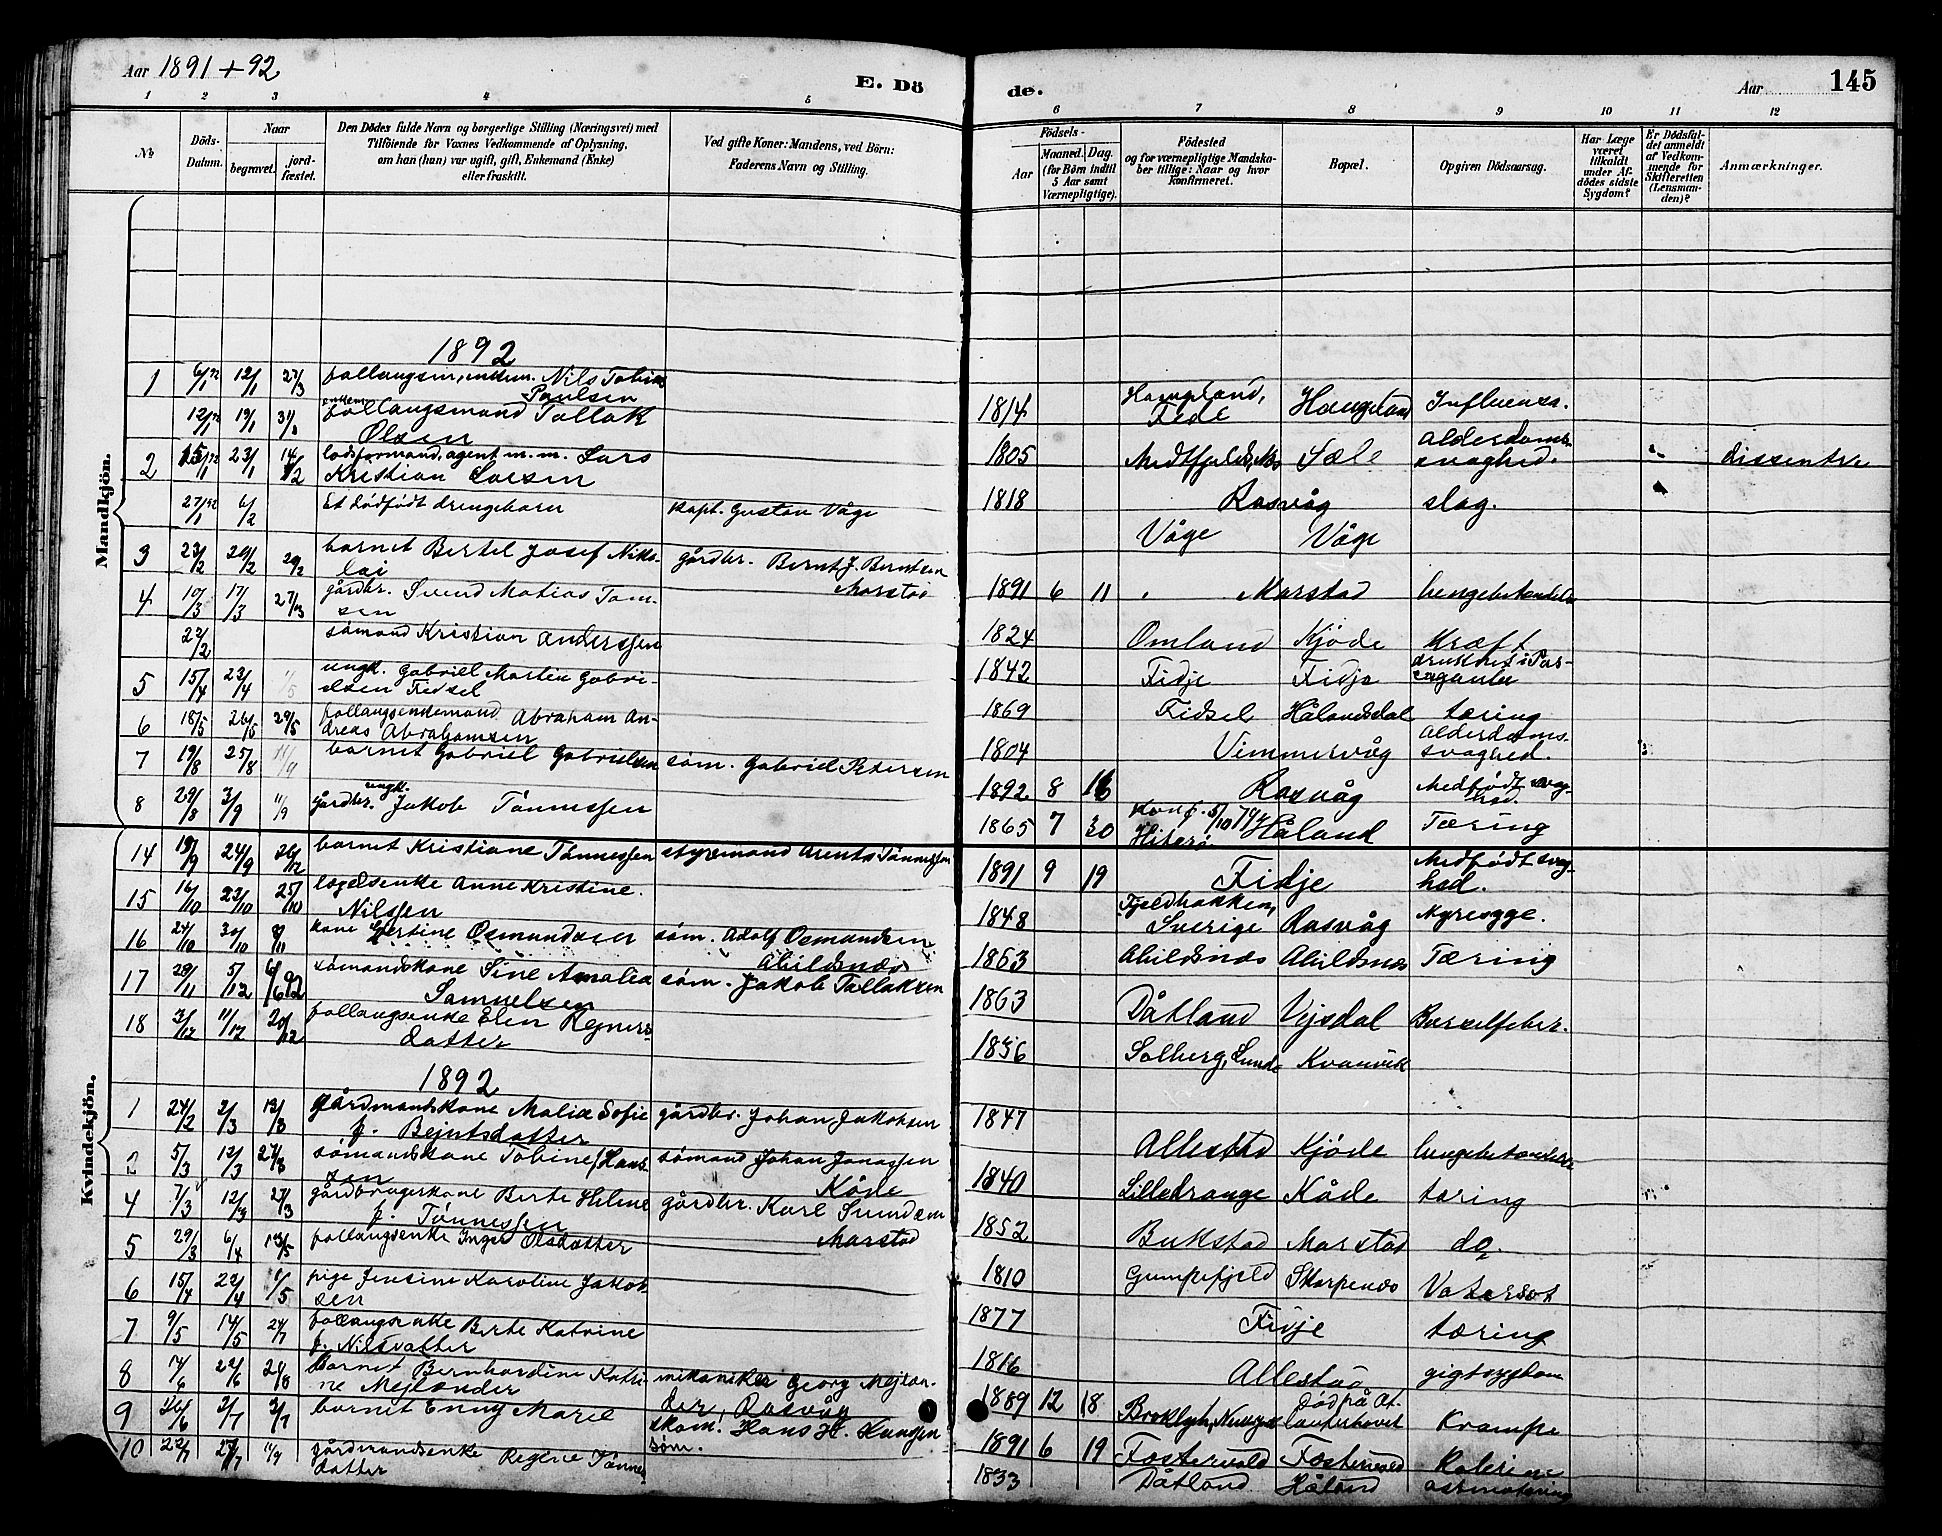 Aar 1891 + 92
E. Dö
de.
Aar
145
1 2 3 4 5 6 7 8 9 10 11 12
No
Döds-Datum.
Naar
begravet.
jord-fæstet.
Den Dödes fulde Navn og borgerlige Stilling (Næringsvei) med
Tilföiende for Voxnes Vedkommende af Oplysning,
om han (hun) var ugift, gift, Enkemand (Enke)
eller fraskilt.
Ved gifte Koner: Mandens, ved Börn:
Faderens Navn og Stilling.
Födsels-
Aar
Maaned. Dag.
(for Börn indtil
5 Aar samt
Værnepligtige).
Födested
og for værnepligtige Mandska-
ber tillige: Naar og hvor
konfirmeret.
Bopæl.
Opgiven Dödsaarsag.
Har Læge
været
tilkaldt
under Af-
dödes sidste
Sygdom?
Er Dödsfal-
det anmeldt
af Vedkom-
mende for
Skifteretten
(Lensman-
den)?
Anmærkninger.
Mandkjön.
1892
1 6/1 92 12/1 27/3 Nils Tobias
Paulsen 1814 Fede Influensa.
12/1 92 19/1 enkem. follaugsmand Tallak
Olsen 1805 Sæle alderdoms-
svaghed. dissenter
2 15/1 92 23/1 14/2 lodsformand, agent m. m. Lars
Kristian Larsen 1818 Rasvåg slag.
27/1 92 6/2 Et dødfødt drengebarn kapt. Gustav Våge Våge Våge
3 23/2 29/2 barnet Bertel Josef Niko-
lai gårdbr. Bernt J. Berntsen
Marstad 1891 6 11 Marstad
4 10/3 17/3 27/3 gårdbr. Svend Matias Tøm-
sen 1824 Omland Kjøde Kræft
22/2 sømand Kristian Anderssen 1842 Fidje Fidje
5 15/4 23/4 1/5 ungk. Gabriel Martin Gabri-
elsen Fidsel 1869 Fidsel Hålandsdal tæring
6 18/5 26/5 29/5 Abraham An-
dreas Abrahamsen 1804 Vimmervåg alderdoms-
svaghed.
7 19/8 25/8 11/9 barnet Gabriel Gabrielsen søm. Gabriel Petersen 1892 8 16 Rasvåg Medfødt svag-
hed.
8 29/8 3/9 11/9 ungk. gårdbr. Jakob Tønnessen 1865 7 30 Konf. 5/10 79
Hiterø Håland Tæring
Kvindekjön.
14 19/9 24/9 26/12 barnet Kristiane Tønnessen styrmand Arents Tønnessen 1891 9 19 Fidje Medfødt svag-
hed.
15 16/10 23/10 25/10 Anne Kristine
Nilssen 1848 Sverige Rasvåg Nyresyge.
16 24/10 30/10 8/11 kone Gertine Osmundsen søm. Adolf Osmundsen
Abildsnæs 1863 Abildsnæs Abildsnæs Tæring
17 28/11 5/12 6/6 92 sømandskone Sine Amalia
Samuelsen søm. Jakob Tallaksen 1863 Dåtland Vejsdal Barselfeber.
18 3/12 11/12 20/12 follaugsenke Elen Rejners-
datter 1836 Solberg, Lunde Kvanvik
1892
1 24/2 2/3 13/3 gårdmandskone Malia Sofie
f. Bejntsdatter gårdbr. Johan Jakobsen 1847 Allestad Kjøde
2 5/3 12/3 27/3 sømandskone Tobine Hans-
sen sømand Johan Jonassen
Kåde 1840 Lilledrange Kåde tæring
4 7/3 12/3 27/3 gårdbrugerkone Berte Helene
f. Tønnessen gårdbr. Karl Svendsen
Marstad 1852 Bukstad Marstad do.
5 29/3 6/4 13/5 follaugsenke Inger Olsdatter 1810 Gumpefjeld Skarpenæs Vatersot
6 15/4 22/4 1/5 pige Jensine Karoline Jakob-
sen 1877 Fidje tæring
7 9/5 14/5 24/7 follaugsenke Berte Katrine
f. Nilsdatter 1816 Allestad
8 14/6 22/6 28/8 barnet Bernhardine Katri-
ne Mejlænder mekaniker Georg Mejlæn-
der, Rasvåg 1889 12 18 død på At-
lanterhavet Krampe
9 26/6 2/7 3/7 barnet Enny Marie skom. Hans H. Hansen 1891 6 19 Fostervold Fostervold Kolerine
10 22/7 27/7 11/9 gårdmandsenke Regine Tønnes
datter søm. 1833 Dåtland Håland